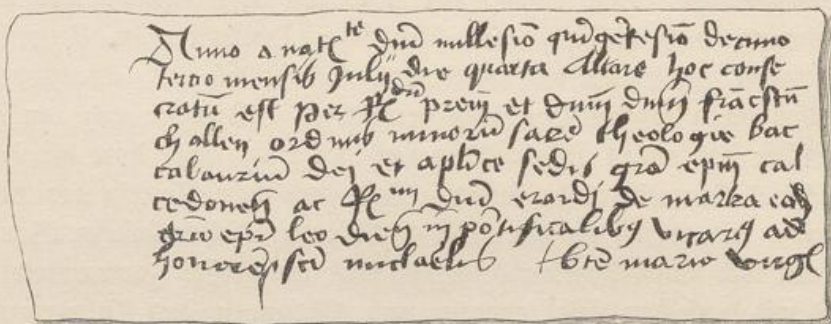 Anno a nat^te dñi millesiō quĩgẽtesiō decimo
tercio mensis Julij die quarta Altare hoc conse
cratũ est per R^dũ prem et dnm dnm frãcscũ
challen ordinis minorũ sacre theologie bac
calauriũ dei et aplice sedis grã epm cal
cedoneñ ac R^mi dni erardi de marka eadẽ
grã epi leodieñ in põtificalibꝫ vicarꝫ ad
honorẽ sci michaelis bte marie virgĩ